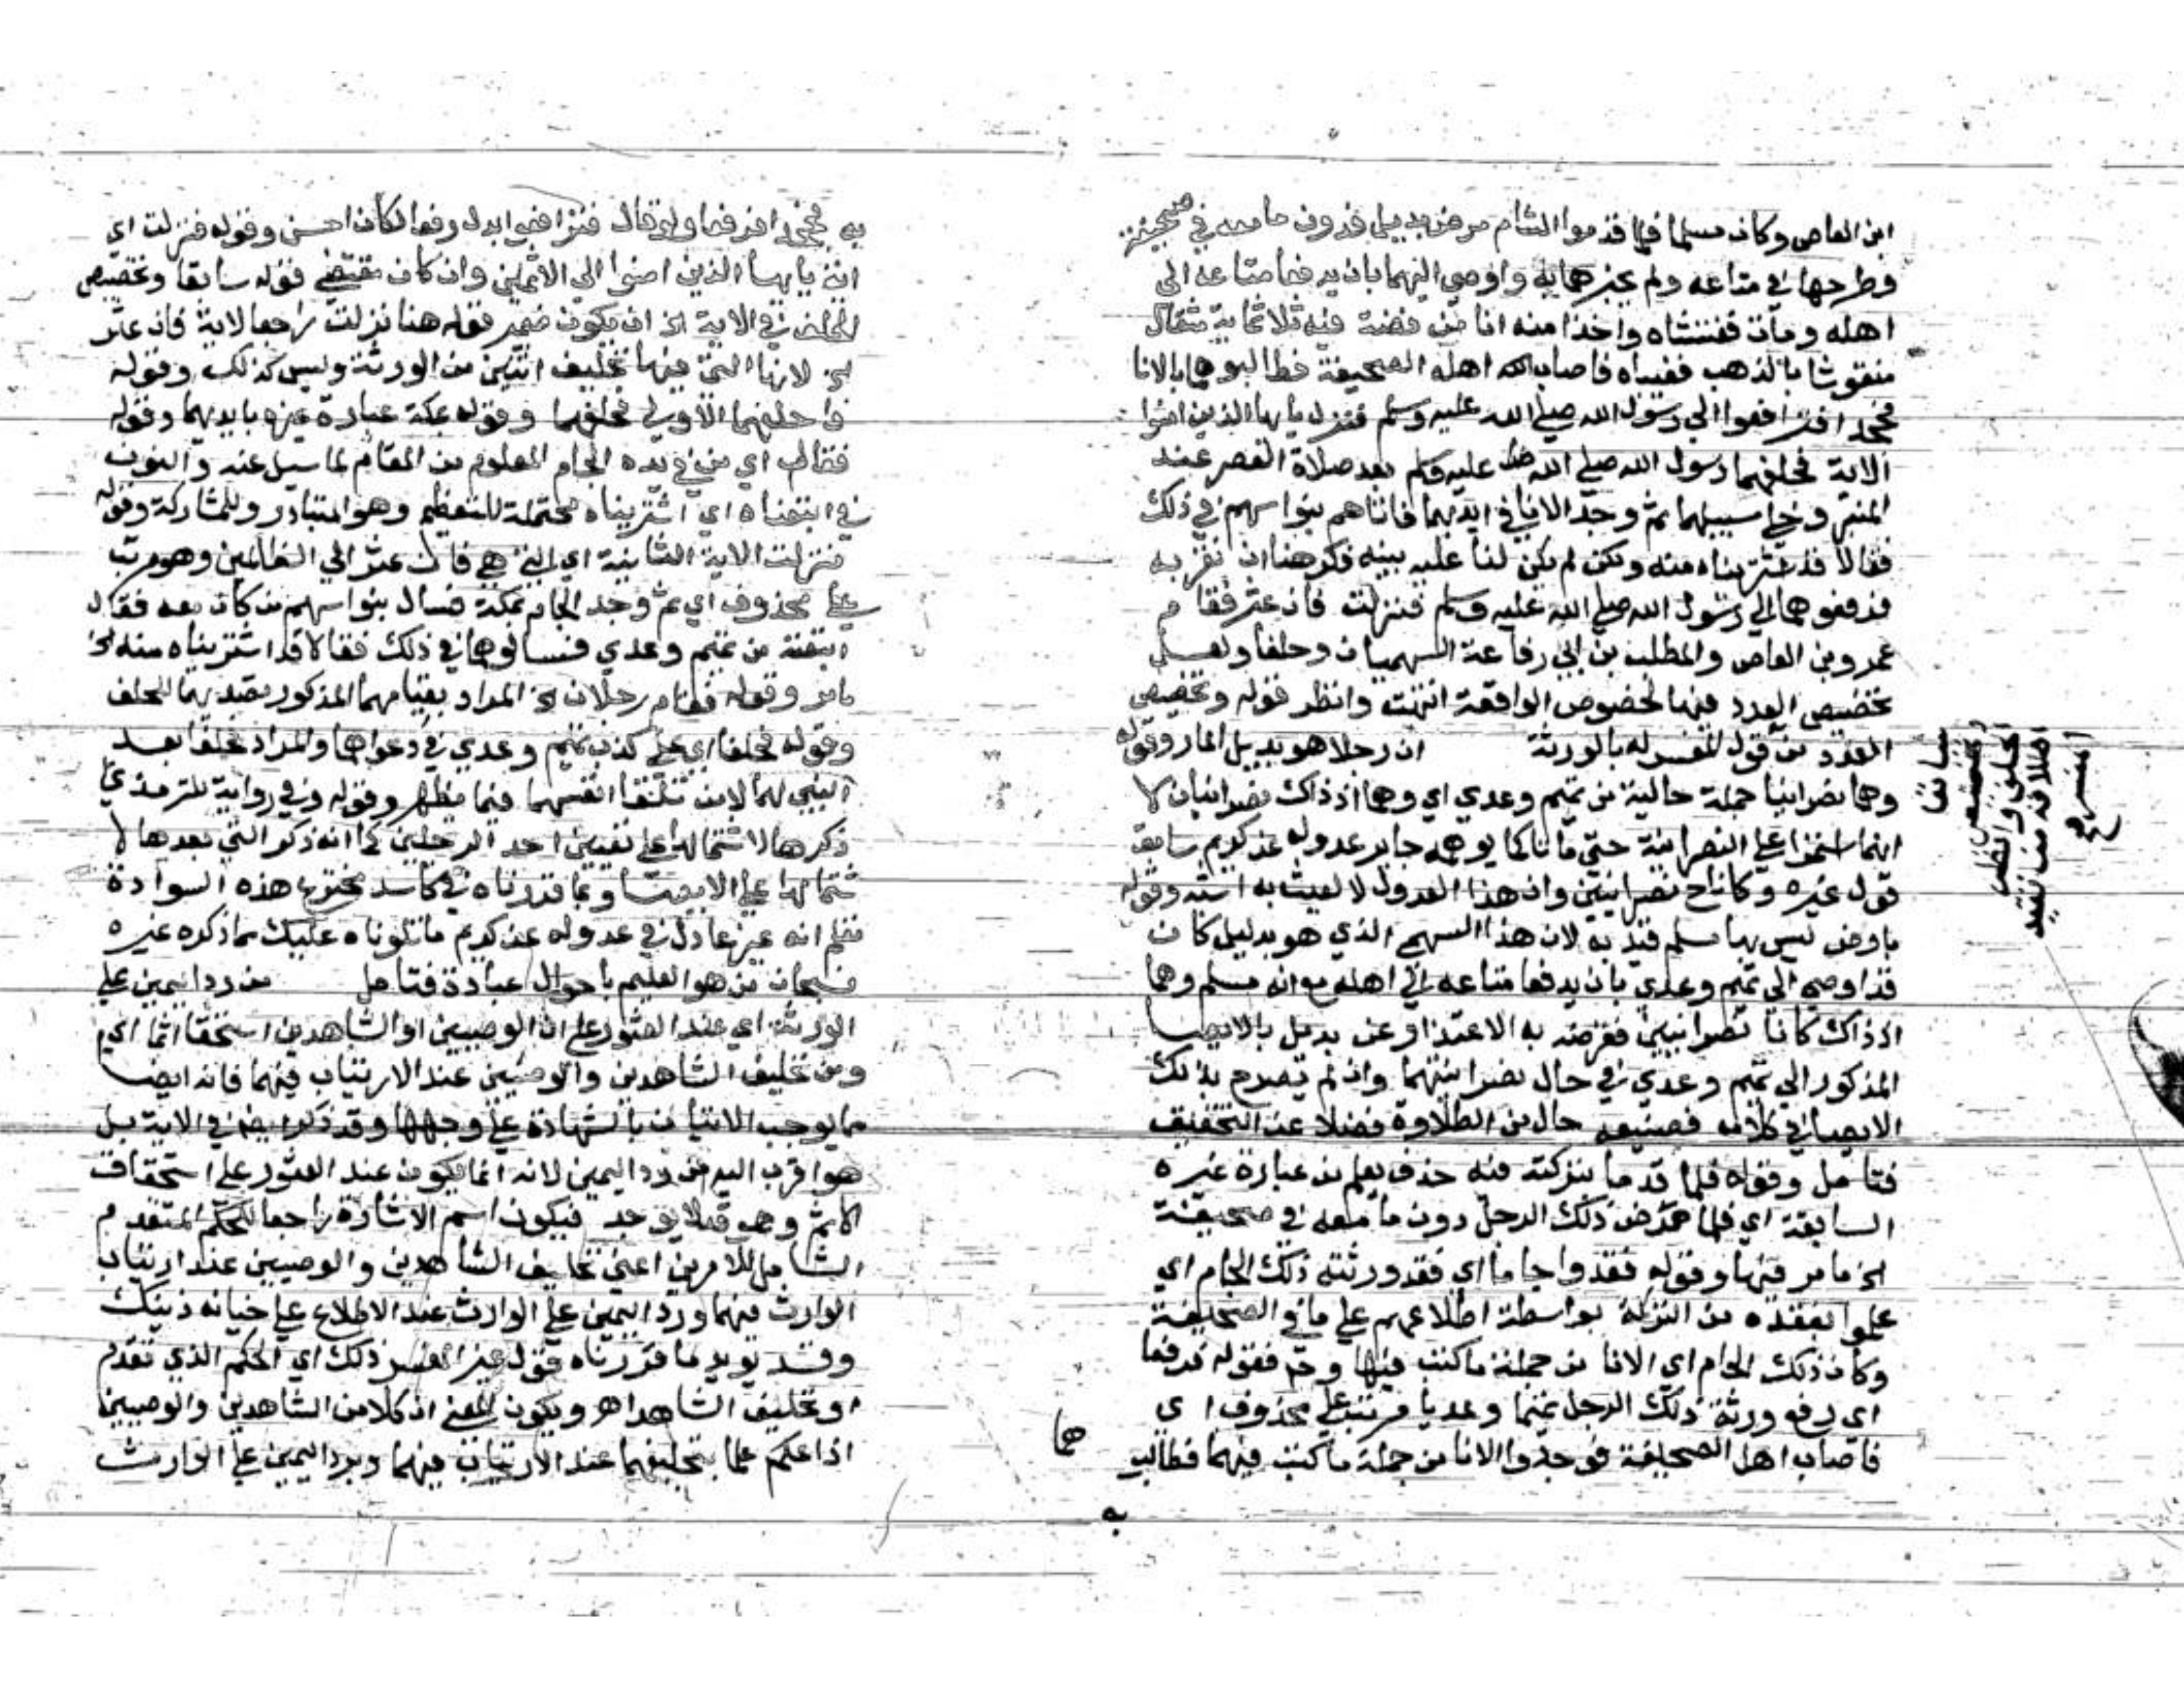 ابن العاص وكان مسلما فلما قدموا الشام مرض بديل فدون ما معه في صحيفة
وطرحها في متاعه ولم يخبرهما به واوصى اليهما بان يدفعا متاعه الى
اهله ومات ففتشاه واخذا منه انا من فضة فيه ثلاثماية مثقال
منقوشا بالذهب فغيباه فاصاب اهله الصحيفة فطالبوهما بالانا
فجحدا فترافعوا الي رسول الله صلي الله عليه وسلم فنزل يا ايها الذين امنوا
الاية فحلفهما رسول الله صلي الله عليه وسلم بعد صلاة العصر عند
المنبر وخلي سبيلهما ثم وجد الانا في ايديهما فاتاهم بنوا سهم في ذلك
فقالا قد اشتريناه منه ولكن لم يكن لنا عليه بينه فكرهنا ان نقر به
فدفعوهما الي رسول الله صلي الله عليه وسلم فنزلت فان عثر فقام
عمرو بن العاص والمطلب بن ابي رفاعة السهميان وحلفا ولعل
تخصيص العدد فيهما لخصوص الواقعة انتهت وانظر قوله وتخصيص
العدد من قول المفسر له بالورثة ان رجلا هو بديل المار وقوله
وهما نصرانيا جملة حالية من تميم وعدي اي وهما اذ ذاك نصرانيان لا
انهما استمرا علي النصرانية حتي ماتا كما يوهمه جابر عدوله عن كريم سابقه
قول غيره وكانا نصرانيين وان هذا العدول لا لعيشا به استه وقوله
بارض ليس بها مسلم قيد به لان هذا السهمي الذي هو بديل كان
قد اوصي الي تميم وعدي بان يدفعا متاعه الي اهله مع انه مسلم وهما
اذ ذاك كانا نصرانيين فغرضه به الاعتذار عن بديل بالايصا
المذكور الي تميم وعدي في حال نصرانيتهما وان لم يصرح بذلك
الايصا في كلامه فصنيعه خال من الطلاوة فضلا عن التحقيق
فتامل وقوله فلما قدما بتركته فيه حذف يعلم من عبارة غيره
السابقة اي فلما مرض ذلك الرجل دون ما معه في صحيفة
الخ ما مر فيها وقوله فقدوا جاما اي فقد ورثته ذلك الجام اي
علموا بفقده من التركة بواسطة اطلاعهم علي ما في الصحيفة
وكان ذلك الجام اي الانا من جملة ما كتب فيها وح فقوله فرفعا
اي رفع ورثة ذلك الرجل تميما وعديا مرتب علي محذوف اي
فاصاب اهل الصحيفة فوجدوا الانا من جملة ما كتب فيهما فطالبو
هما
به
سابقا
وتخصيص
الحلف وانظر
اهلا قد
المفسر ح
به فجحدا فرفعا ولو قال فترافعوا بدل رفعا لكان احسن وقوله فنزلت اي
اية يا ايها الذين امنوا الي الاثمين وان كان مقتضي قوله سابقا وتخصيص
الحلف في الاية الخ ان يكون ضمير قوله هنا نزلت راجعا لاية فان عثر
الخ لانها التي فيها تحليف اثنين من الورثة وليس كذلك وقوله
فاحلفهما الاولي فحلفهما وقوله بمكة عبارة غيره بايديهما وقوله
فقال اي من في يده الجام المعلوم من المقام لما سيل عنه والنون
في ابتعناه اي اشتريناه محتملة للتعظيم وهو المتبادر وللمشاركة وقوله
فنزلت الاية الثانية اي التي هي فان عثر الي الظالمين وهو مرتب
علي محذوف اي ثم وجد الجام بمكة فسال بنوا سهم من كان معه فقال
ابتعته من تميم وعدي فسالوهما في ذلك فقالا قد اشتريناه منه الخ
ما مر وقوله فقام رجلان الخ المراد بقيامهما المذكور تصديهما للحلف
وقوله فحلفا اي علي كذب تميم وعدي في دعواهما والمراد بحلفا بعد
لهما لا من تلقا انفسهما فيما يظهر وقوله وفي رواية للترمذي
ذكرها لاشتمالها علي تعيين احد الرجلين كما انه ذكر التي بعدها لا
شتمالها علي الايصا وبما قررناه هذه السوادة
تعلم انه غير عادل في عدوله عن كريم ما تلوناه عليك مما ذكره غيره
فسبحان من هو العليم باحوال عباده فتامل من رد اليمين علي
الورثة اي عند العثور علي ان الوصيين او الشاهدين استحقا اثما اي
ومن تحليف الشاهدين والوصيين عند الارتياب فيهما فانه ايضا
مما يوجب الاتيان بالشهادة علي وجهها وقد ذكر ايضا في الاية بل
هو اقرب اليه من رد اليمين لانه انما يكون عند العثور علي استحقاق
الاثم وهو قد لا يوجد فيكون اسم الاشارة راجعا للحكم المتقدم
الشامل للامرين اعني تحليف الشاهدين والوصيين عند ارتياب
الوارث فيهما ورد اليمين علي الوارث عند الاطلاع علي خيانة ذينك
وقد يويد ما قررناه قول غير المفسر ذلك اي الحكم الذي تقدم
او تحليف الشاهد اهـ ويكون المعني ان كلا من الشاهدين والوصيين
اذا علم بتحليفهما عند الارتياب فيهما وبرد اليمين علي الوارث